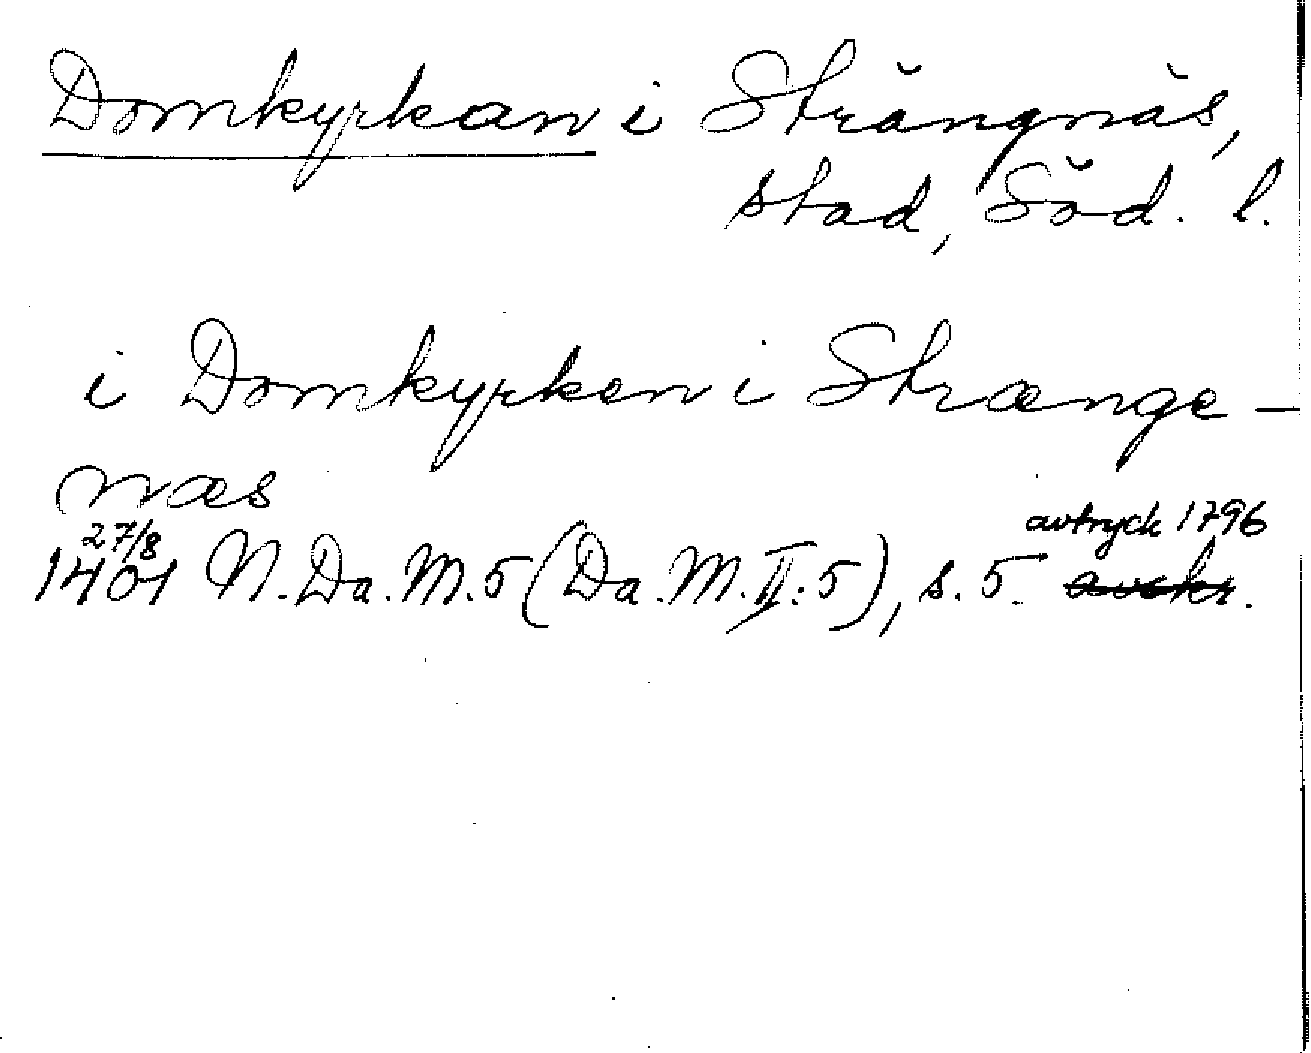 Domkyrkan i Strängnäs,
stad, Söd. l.
i Domkyrken i Strænge-
næs
27/8 avtryck 1796
1401 N.Da.M.5 (Da.M.II:5), s. 5. avskr.